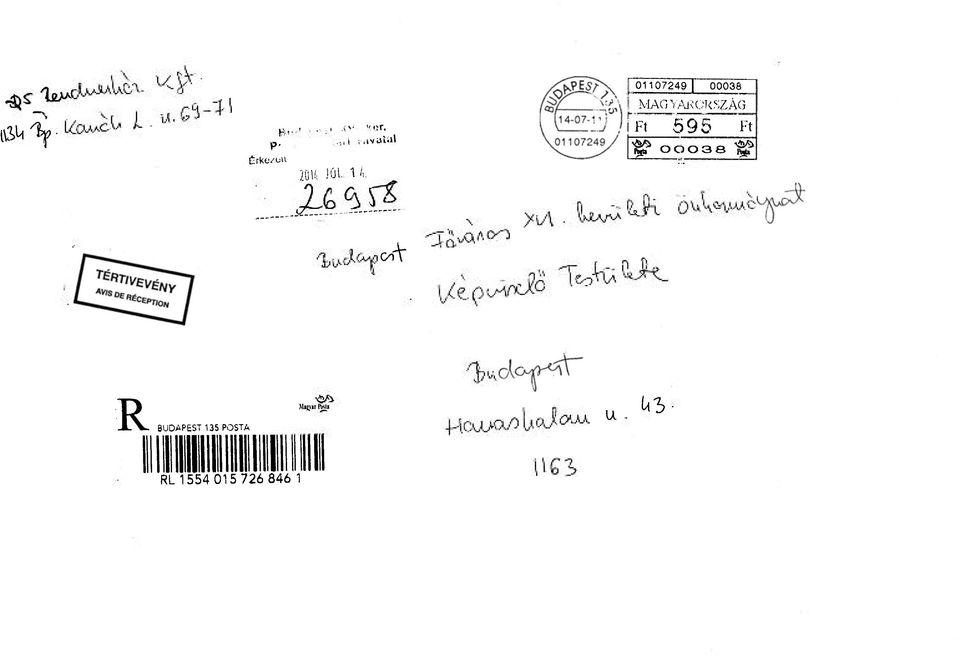 Kft.
1134 Bp. u. 69-71
BUDAPEST 135
14-07-11
01107249
01107249 00038
MAGYARORSZÁG
Ft 595 Ft
Posta 00038 Posta
ker.
Érkezett
2014 JÚL 14.
26958
Budapest Főváros XVI. kerületi Önkormányzat
Képviselő Testülete
TÉRTIVEVÉNY
AVIS DE RÉCEPTION
Budapest
Havashalom u. 43.
1163
R BUDAPEST 135 POSTA
Magyar Posta
RL 1554 015 726 846 1